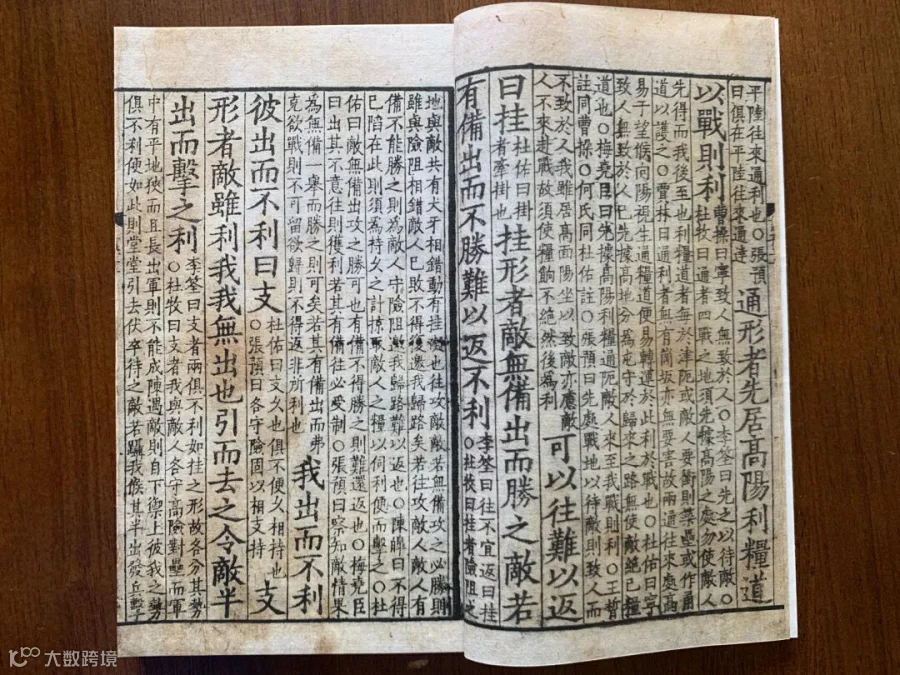 平陸往來通利也○張預
曰俱在平陸往來通達
通形者先居高陽利糧道
以戰則利
曹操曰寧致人無致於人○李筌曰先之以待敵○
杜牧曰通者四戰之地須先據高陽之處勿使敵人
先得而我後至也利糧道者每於津阨或敵人要衝則築壘或作甬
道以護之○賈林曰通利者無有崗坂亦無要害故兩通往來居高
易于望候向陽視生通糧道便易轉運於此利於戰也○杜佑曰寧
致人無致於人已先據高地分為屯守於歸來之路無使敵絶已糧
道也○梅堯臣曰先據高陽利糧通阨敵人來至我戰則利○王晳
註同曹操○何氏同杜佑註○張預曰先處戰地以待敵則致人而
不致於人我雖居高面陽坐以致敵亦應敵
人不來赴戰故須使糧餉不絶然後為利
可以往難以返
曰挂
杜佑曰掛
者牽掛也
挂形者敵無備出而勝之敵若
有備出而不勝難以返不利
李筌曰往不宜返曰挂
○杜牧曰挂者險阻之
地與敵共有犬牙相錯動有挂礙也往攻敵敵若無備攻之必勝則
雖與險阻相錯敵人已敗不得復邀我歸路矣若往攻敵人敵人有
備不能勝之則為敵人守險阻邀我歸路難以返也○陳皥曰不得
已陷在此則須為持久之計掠取敵人之糧以伺利便而擊之○杜
佑曰敵無備出攻之勝可也有備不得勝之則難還返也○梅堯臣
曰出其不意往則獲利若其有備往必受制○張預曰察知敵情果
為無備一舉而勝之則可矣若其有備出而弗
克欲戰則不可留欲歸則不得返非所利也
我出而不利
彼出而不利曰支
杜佑曰支久也俱不便久相持也
○張預曰各守險固以相支持
支
形者敵雖利我我無出也引而去之令敵半
出而擊之利
李筌曰支者兩俱不利如挂之形故各分其勢
○杜牧曰支者我與敵人各守高險對壘而軍
中有平地狹而且長出軍則不能成陳遇敵則自下禦上彼我之勢
俱不利便如此則堂堂引去伏卒待之敵若躡我候其半出發兵擊
大数跨境